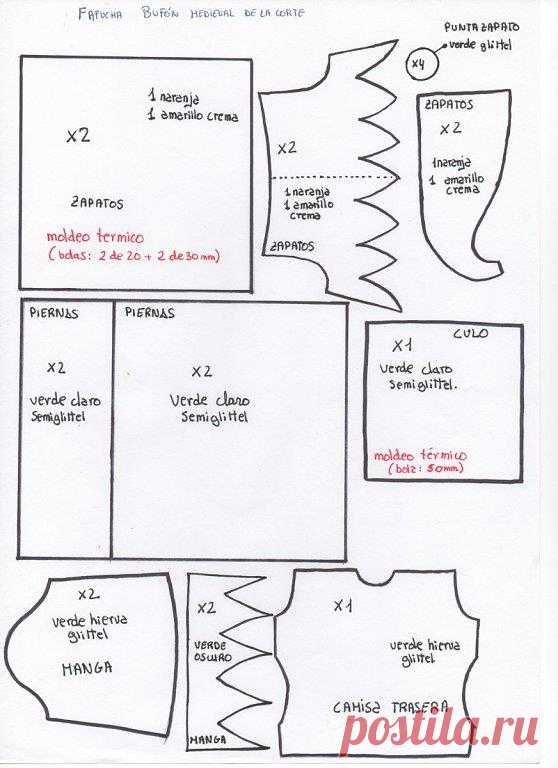 FAPUCHA BUFÓN MEDIEVAL DE LA CORTE
PUNTA ZAPATO
verde glittel
x4
x2
1 naranja
1 amarillo crema
ZAPATOS
moldeo termico
(bolas: 2 de 20 + 2 de 30 mm)
x2
1 naranja
1 amarillo
crema
ZAPATOS
ZAPATOS
x2
1 naranja
1 amarillo
crema
PIERNAS
x2
verde claro
Semiglittel
PIERNAS
x2
Verde claro
Semiglittel
CULO
X1
verde claro
Semiglittel.
moldeo térmico
(bola: 50mm)
x2
verde hierva
glittel
MANGA
x2
VERDE
OSCURO
MANGA
X1
verde hierva
glittel.
CAMISA TRASERA
postila.ru